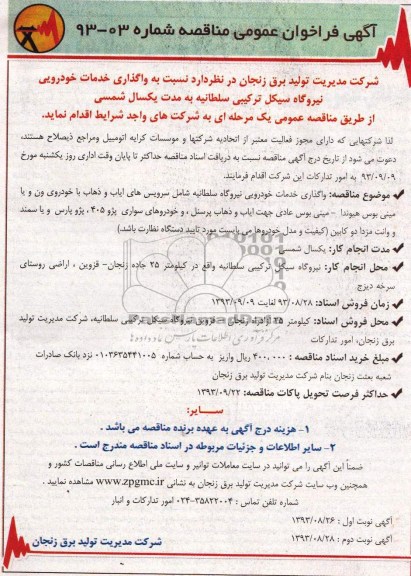 آگهی فراخوان عمومی مناقصه شماره ۰۳-۹۳
شرکت مدیریت تولید برق زنجان در نظردارد نسبت به واگذاری خدمات خودرویی
نیروگاه سیکل ترکیبی سلطانیه به مدت یکسال شمسی
از طریق مناقصه عمومی یک مرحله ای به شرکت های واجد شرایط اقدام نماید.
لذا شرکتهایی که دارای مجوز فعالیت معتبر از اتحادیه شرکتها و موسسات کرایه اتومبیل ومراجع ذیصلاح هستند،
دعوت می شود از تاریخ درج آگهی مناقصه نسبت به دریافت اسناد مناقصه حداکثر تا پایان وقت اداری روز یکشنبه مورخ
۹۳/۰۹/۰۹ به امور تدارکات این شرکت اقدام فرمایند.
موضوع مناقصه: واگذاری خدمات خودرویی نیروگاه سلطانیه شامل سرویس های ایاب و ذهاب با خودروی ون و یا
مینی بوس هیوندا - مینی بوس عادی جهت ایاب و ذهاب پرسنل ، و خودروهای سواری پژو ۴۰۵ ، پژو پارس و یا سمند
و وانت مزدا دو کابین (کیفیت و مدل خودروها می بایست مورد تایید دستگاه نظارت باشد)
مدت انجام کار: یکسال شمسی
محل انجام کار: نیروگاه سیکل ترکیبی سلطانیه واقع در کیلومتر ۲۵ جاده زنجان- قزوین ، اراضی روستای
سرخه دیزج
زمان فروش اسناد: ۹۳/۰۸/۲۸ لغایت ۱۳۹۳/۰۹/۰۹
محل فروش اسناد: کیلومتر ۲۵ آزادراه زنجان – قزوین نیروگاه سیکل ترکیبی سلطانیه، شرکت مدیریت تولید
برق زنجان، امور تدارکات
مبلغ خرید اسناد مناقصه : ۴۰۰,۰۰۰ ریال واریز به حساب شماره ۰۱۰۳۶۳۵۴۴۱۰۰۵ نزد بانک صادرات
شعبه بعثت زنجان بنام شرکت مدیریت تولید برق زنجان
حداکثر فرصت تحویل پاکات مناقصه: ۱۳۹۳/۰۹/۲۲
سـایـر:
۱- هزینه درج آگهی به عهده برنده مناقصه می باشد .
۲- سایر اطلاعات و جزئیات مربوطه در اسناد مناقصه مندرج است .
ضمناً این آگهی را می توانید در سایت معاملات توانیر و سایت ملی اطلاع رسانی مناقصات کشور و
همچنین وب سایت شرکت مدیریت تولید برق زنجان به نشانی www.zpgmc.ir مشاهده نمایید .
شماره تلفن تماس : ۳۵۸۲۲۰۰۴-۰۲۴ امور تدارکات و انبار
آگهی نوبت اول : ۱۳۹۳/۰۸/۲۶
آگهی نوبت دوم : ۱۳۹۳/۰۸/۲۸
شرکت مدیریت تولید برق زنجان